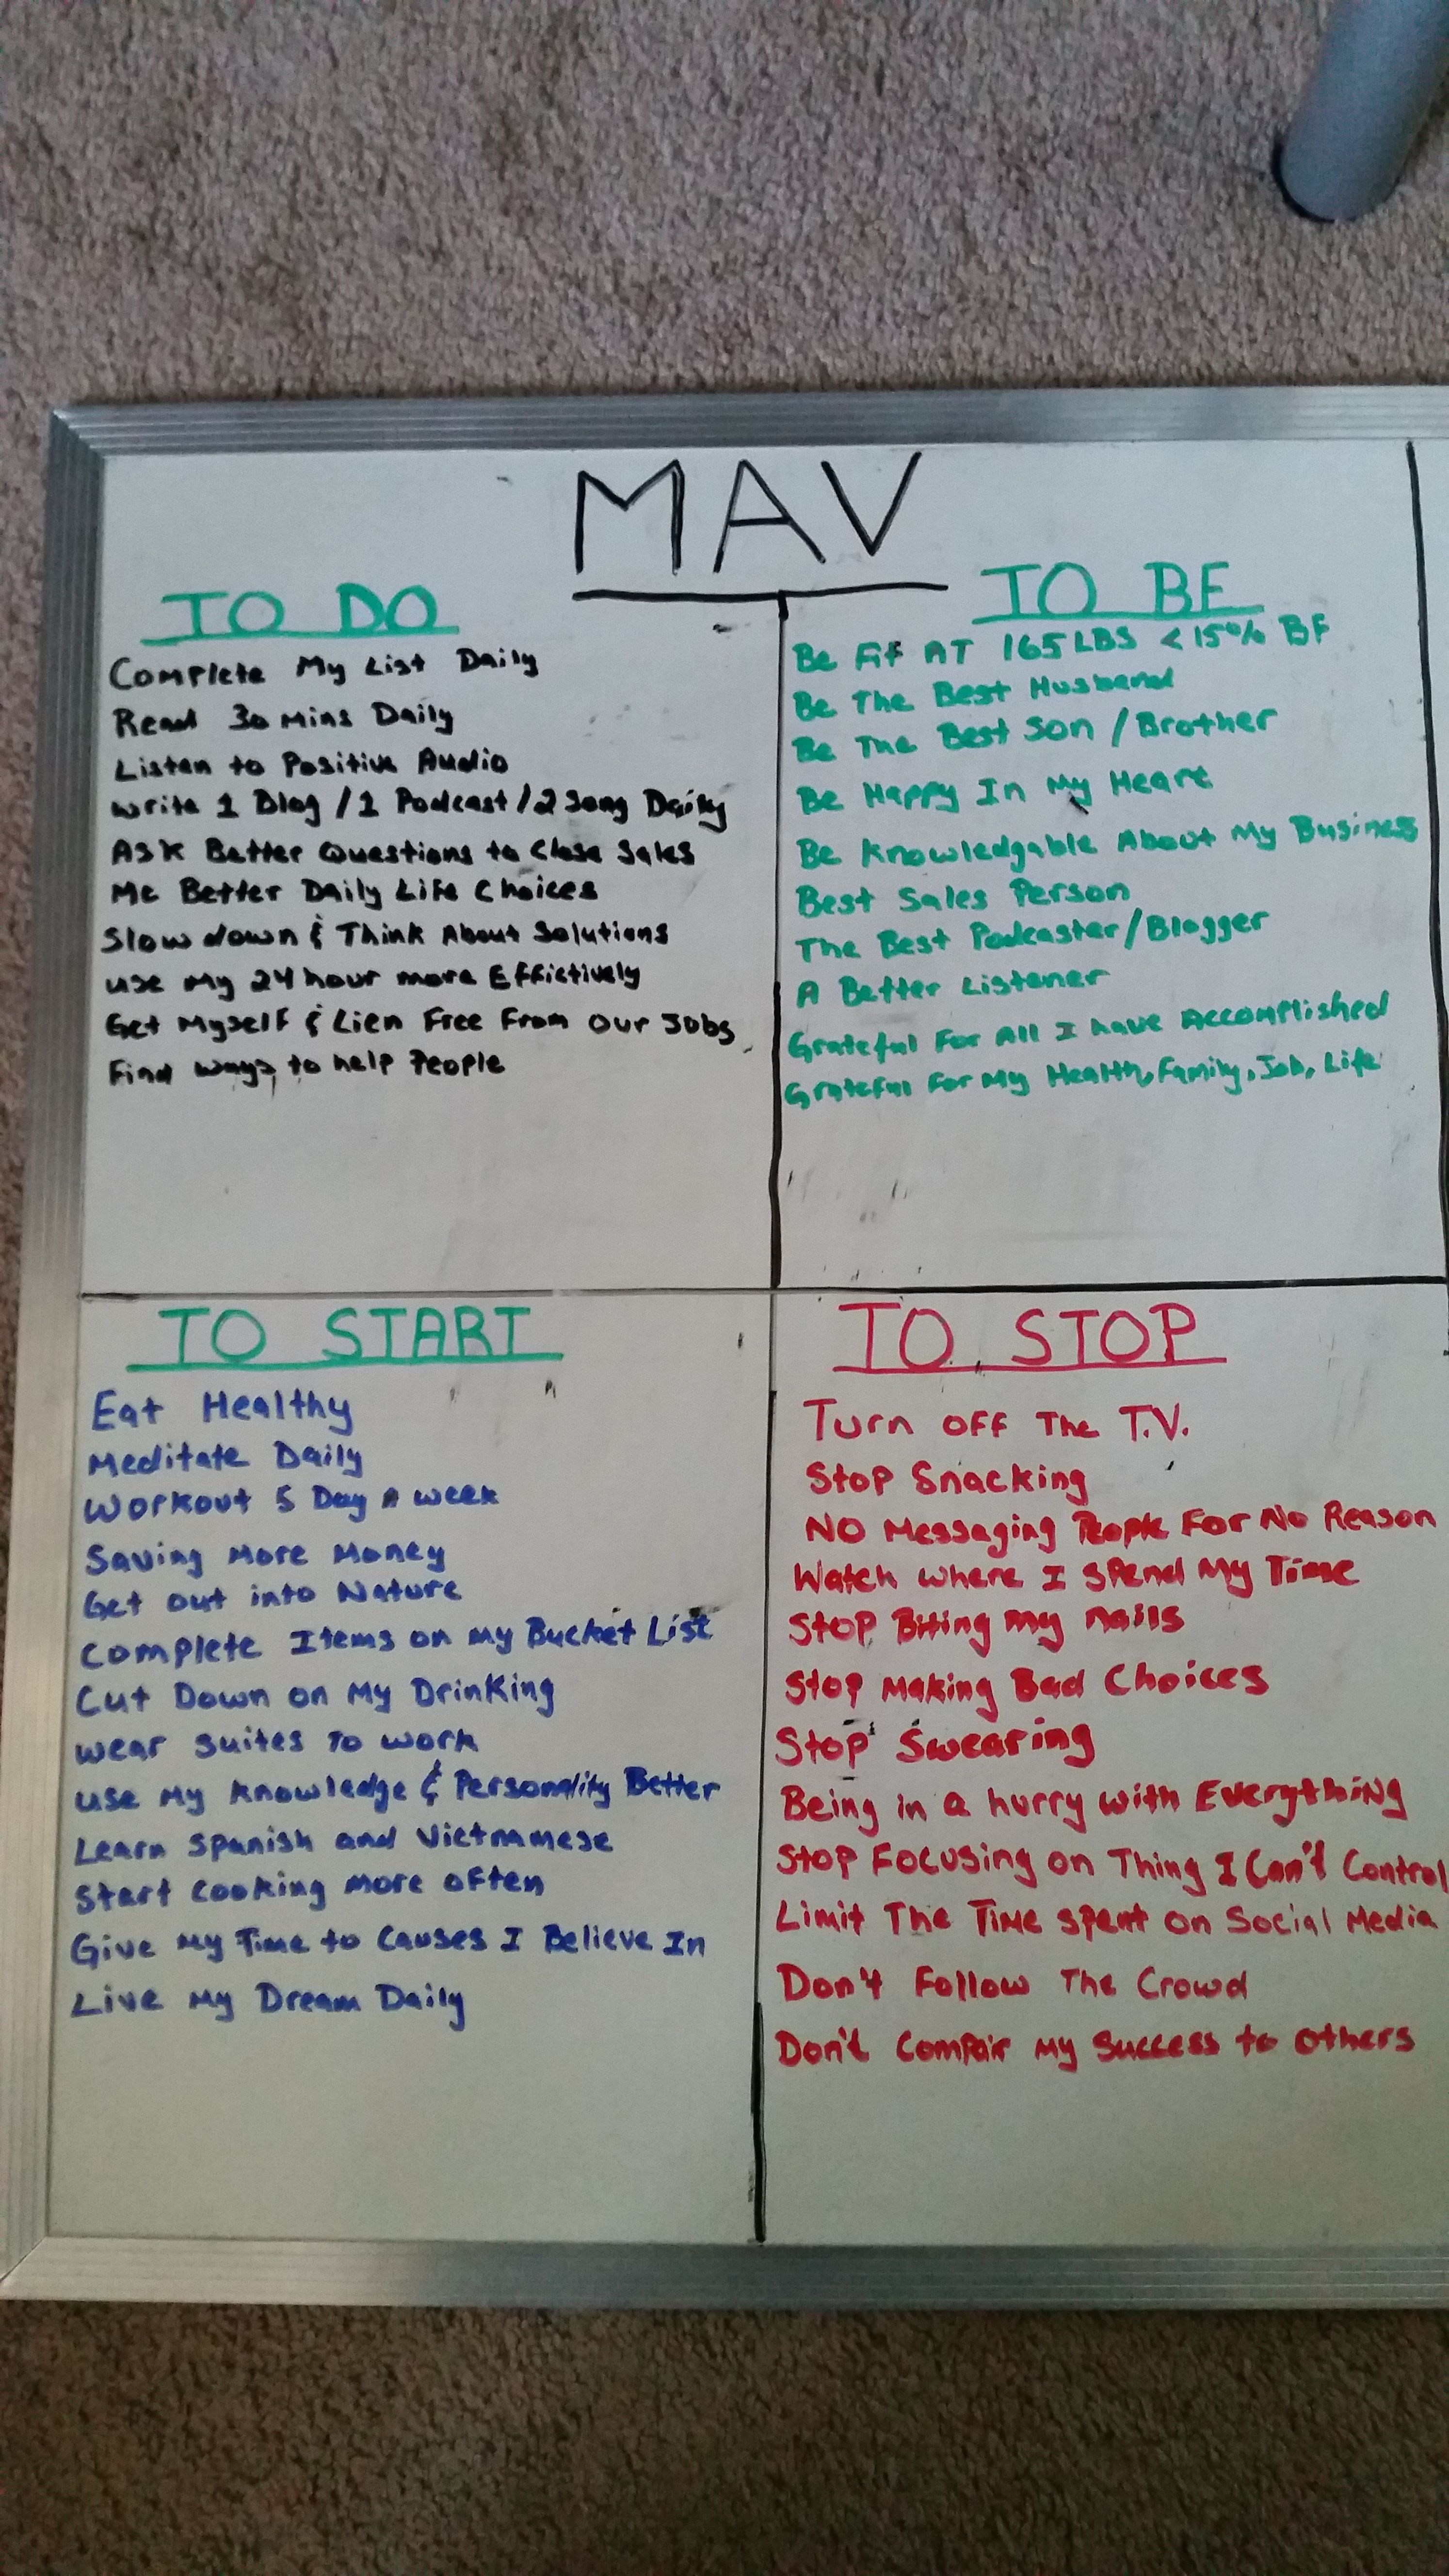 MAV
TO DO
Complete My List Daily
Read 30 Mins Daily
Listen to Positive Audio
Write 1 Blog / 1 Podcast / 2 Song Daily
Ask Better Questions to Close Sales
Me Better Daily Life Choices
Slow down & Think About Solutions
use My 24 hour more Effictively
Get Myself & Lien Free From our Jobs
Find ways to help People
TO BE
Be Fit AT 165 LBS < 15% BF
Be The Best Husband
Be The Best Son / Brother
Be Happy In My Heart
Be Knowledgable About My Business
Best Sales Person
The Best Podcaster/Blogger
A Better Listener
Grateful For All I have Accomplished
Grateful For My Health, Family, Job, Life
TO START
Eat Healthy
Meditate Daily
Workout 5 Day A week
Saving More Money
Get out into Nature
Complete Items on My Bucket List
Cut Down on My Drinking
wear suites To work
use My Knowledge & Personality Better
Learn Spanish and Vietnamese
Start cooking more often
Give My Time to Causes I Believe In
Live My Dream Daily
TO STOP
Turn off The T.V.
Stop Snacking
NO Messaging People For No Reason
Watch where I spend My Time
Stop Biting my nails
Stop Making Bad Choices
Stop Swearing
Being in a hurry with Everything
Stop Focusing on Thing I Can't Control
Limit The Time spent on Social Media
Don't Follow The Crowd
Don't Compair My Success to others